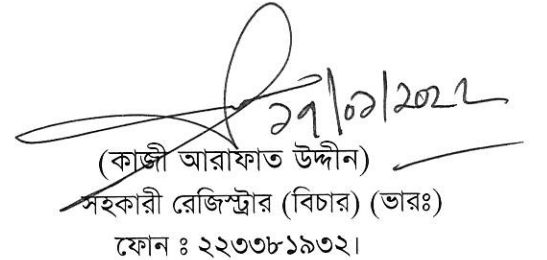 ২৭/০১/২০২২
(কাজী আরাফাত উদ্দীন)
সহকারী রেজিস্ট্রার (বিচার) (ভারঃ)
ফোন ঃ ২২৩৩৮১৯৩২।